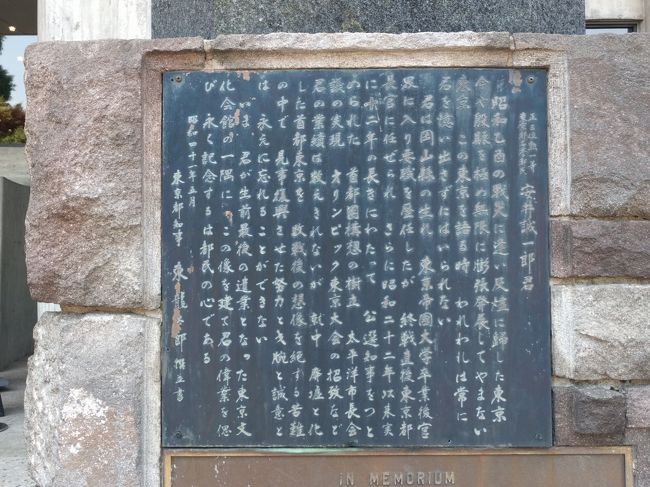 正三位勲一等
東京都名誉都民 安井誠一郎君
昭和乙酉の戦災に遭い灰燼に帰した東京
今や殷賑を極め無限に膨張発展してやまない
東京 この東京を語る時 われわれは常に
君を憶い出さずにはいられない
君は岡山県の生れ 東京帝国大学卒業後官
界に入り要職を歴任したが 終戦直後東京都
長官に任ぜられ さらに昭和二十二年以来実
に十二年の長きにわたって 公選知事をつと
められた 首都圏構想の樹立 太平洋市長会
議の実現 オリンピック東京大会の招致など
君の業績は数えきれないが 就中 廃墟と化
した首都東京を 敗戦後の想像を絶する苦難
の中で 見事復興させた努力 手腕と誠意と
は 永えに忘れることができない
いま 君が生前最後の遺業となった東京文
化会館の一隅に この像を建て君の偉業を偲
び 永く記念するは都民の心である
昭和四十一年五月
東京都知事 東 龍太郎 撰並書
IN MEMORIUM